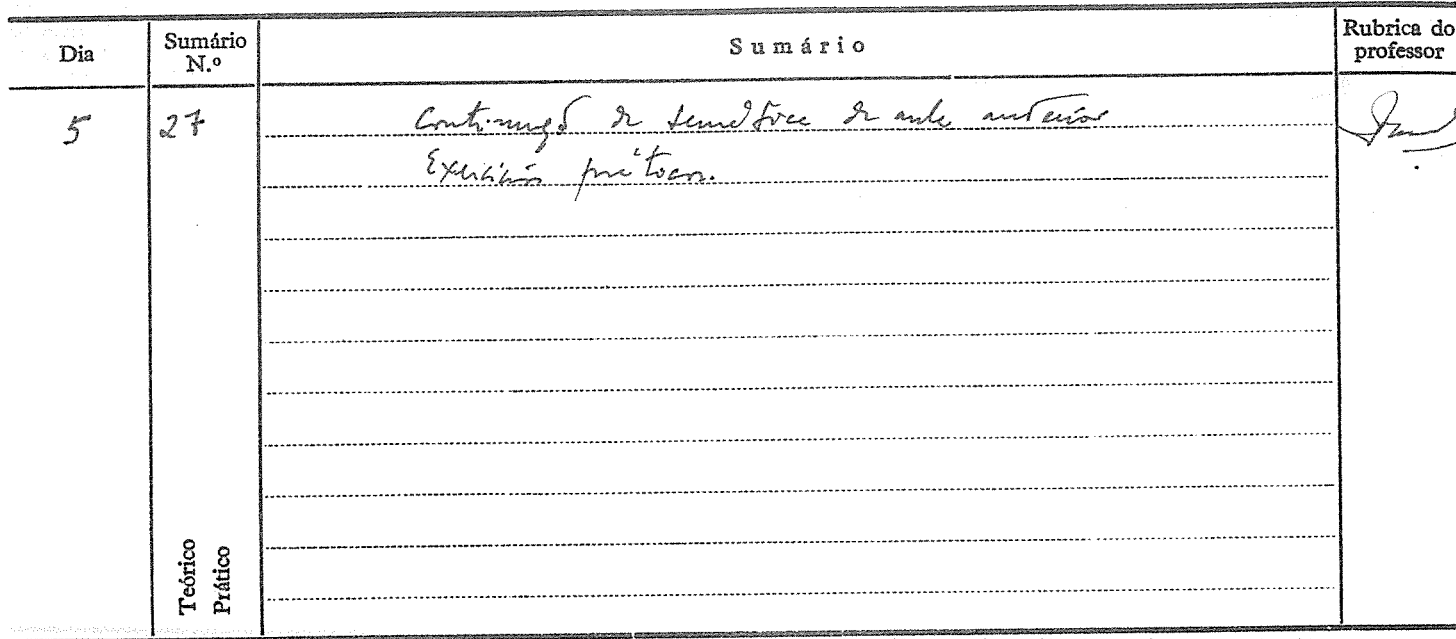 Dia
Sumário
N.º
Sumário
Rubrica do
professor
5
27
Continuação da temática da aula anterior
Exercícios práticos.
Teórico
Prático